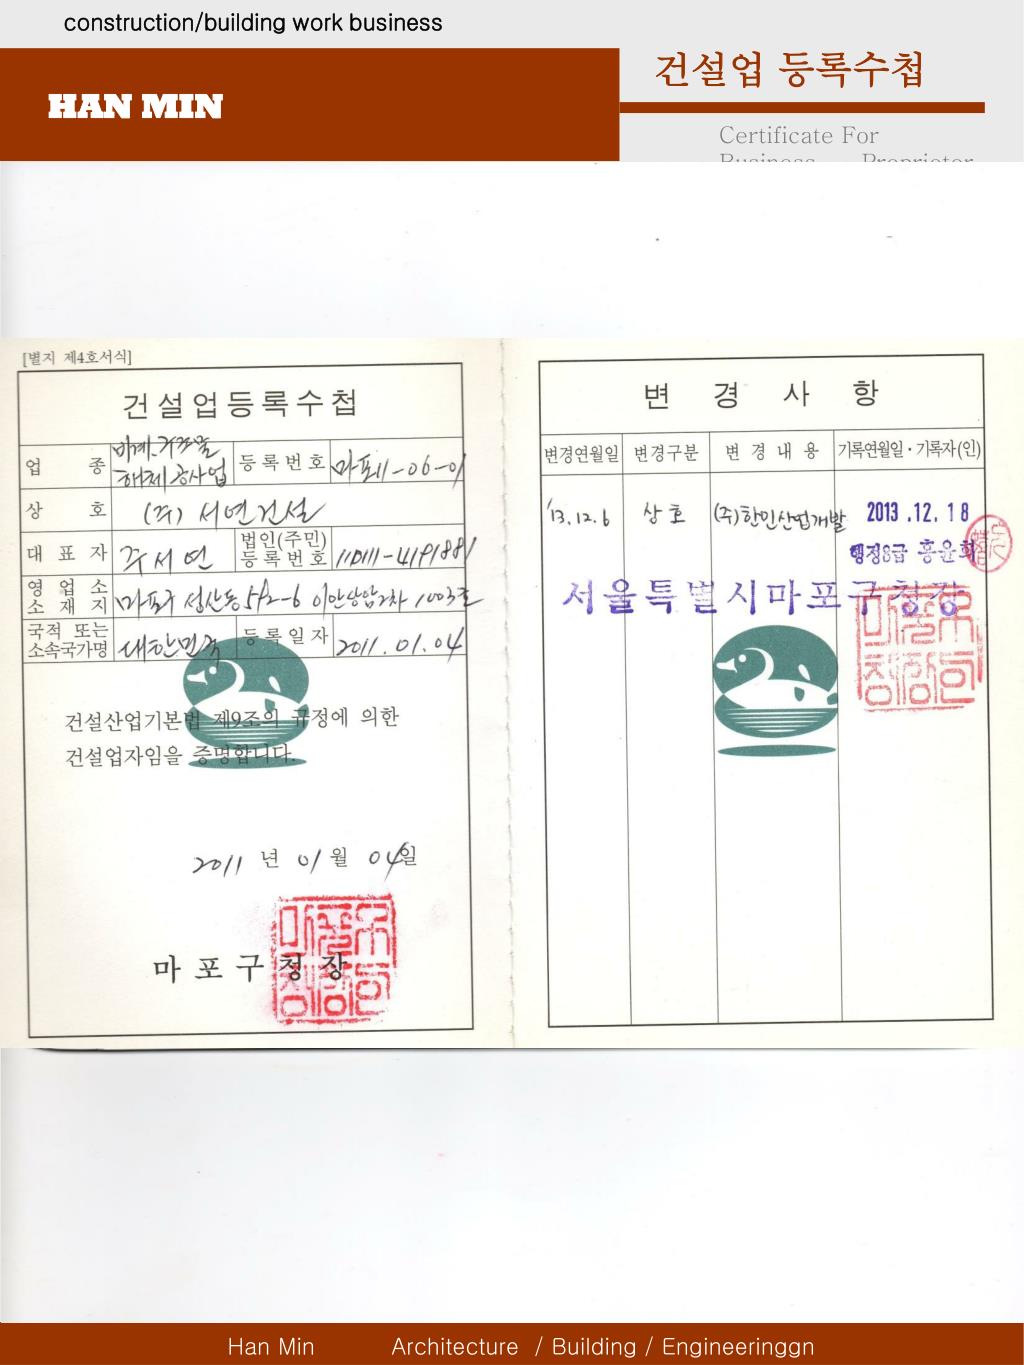 construction/building work business
HAN MIN
건설업 등록수첩
Certificate For
Business Proprietor
[별지 제4호서식]
건설업등록수첩
업 종 비계.구조물 해체공사업 등록번호 마포11-06-01
상 호 (주) 서연건설
대 표 자 주서연 법인(주민) 등록번호 110111-4191881
영업소 소재지 마포구 성산동 592-6 이안상암2차 1003호
국적 또는 소속국가명 대한민국 등록일자 2011.01.04
건설산업기본법 제9조의 규정에 의한
건설업자임을 증명합니다.
2011 년 01 월 04일
마포구청장
변 경 사 항
변경연월일 변경구분 변 경 내 용 기록연월일·기록자(인)
'13.12.6 상호 (주)한민산업개발 2013.12.18
행정8급 홍윤희
서울특별시마포구청장
Han Min Architecture / Building / Engineeringgn